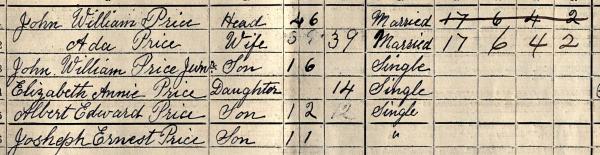 John William Price Head 46 Married 17 6 4 2
2 Ada Price Wife 39 39 Married 17 6 4 2
3 John William Price Junr. Son 16 Single
4 Elizabeth Annie Price Daughter 14 Single
5 Albert Edward Price Son 12 12 Single
6 Josheph Ernest Price Son 11 "